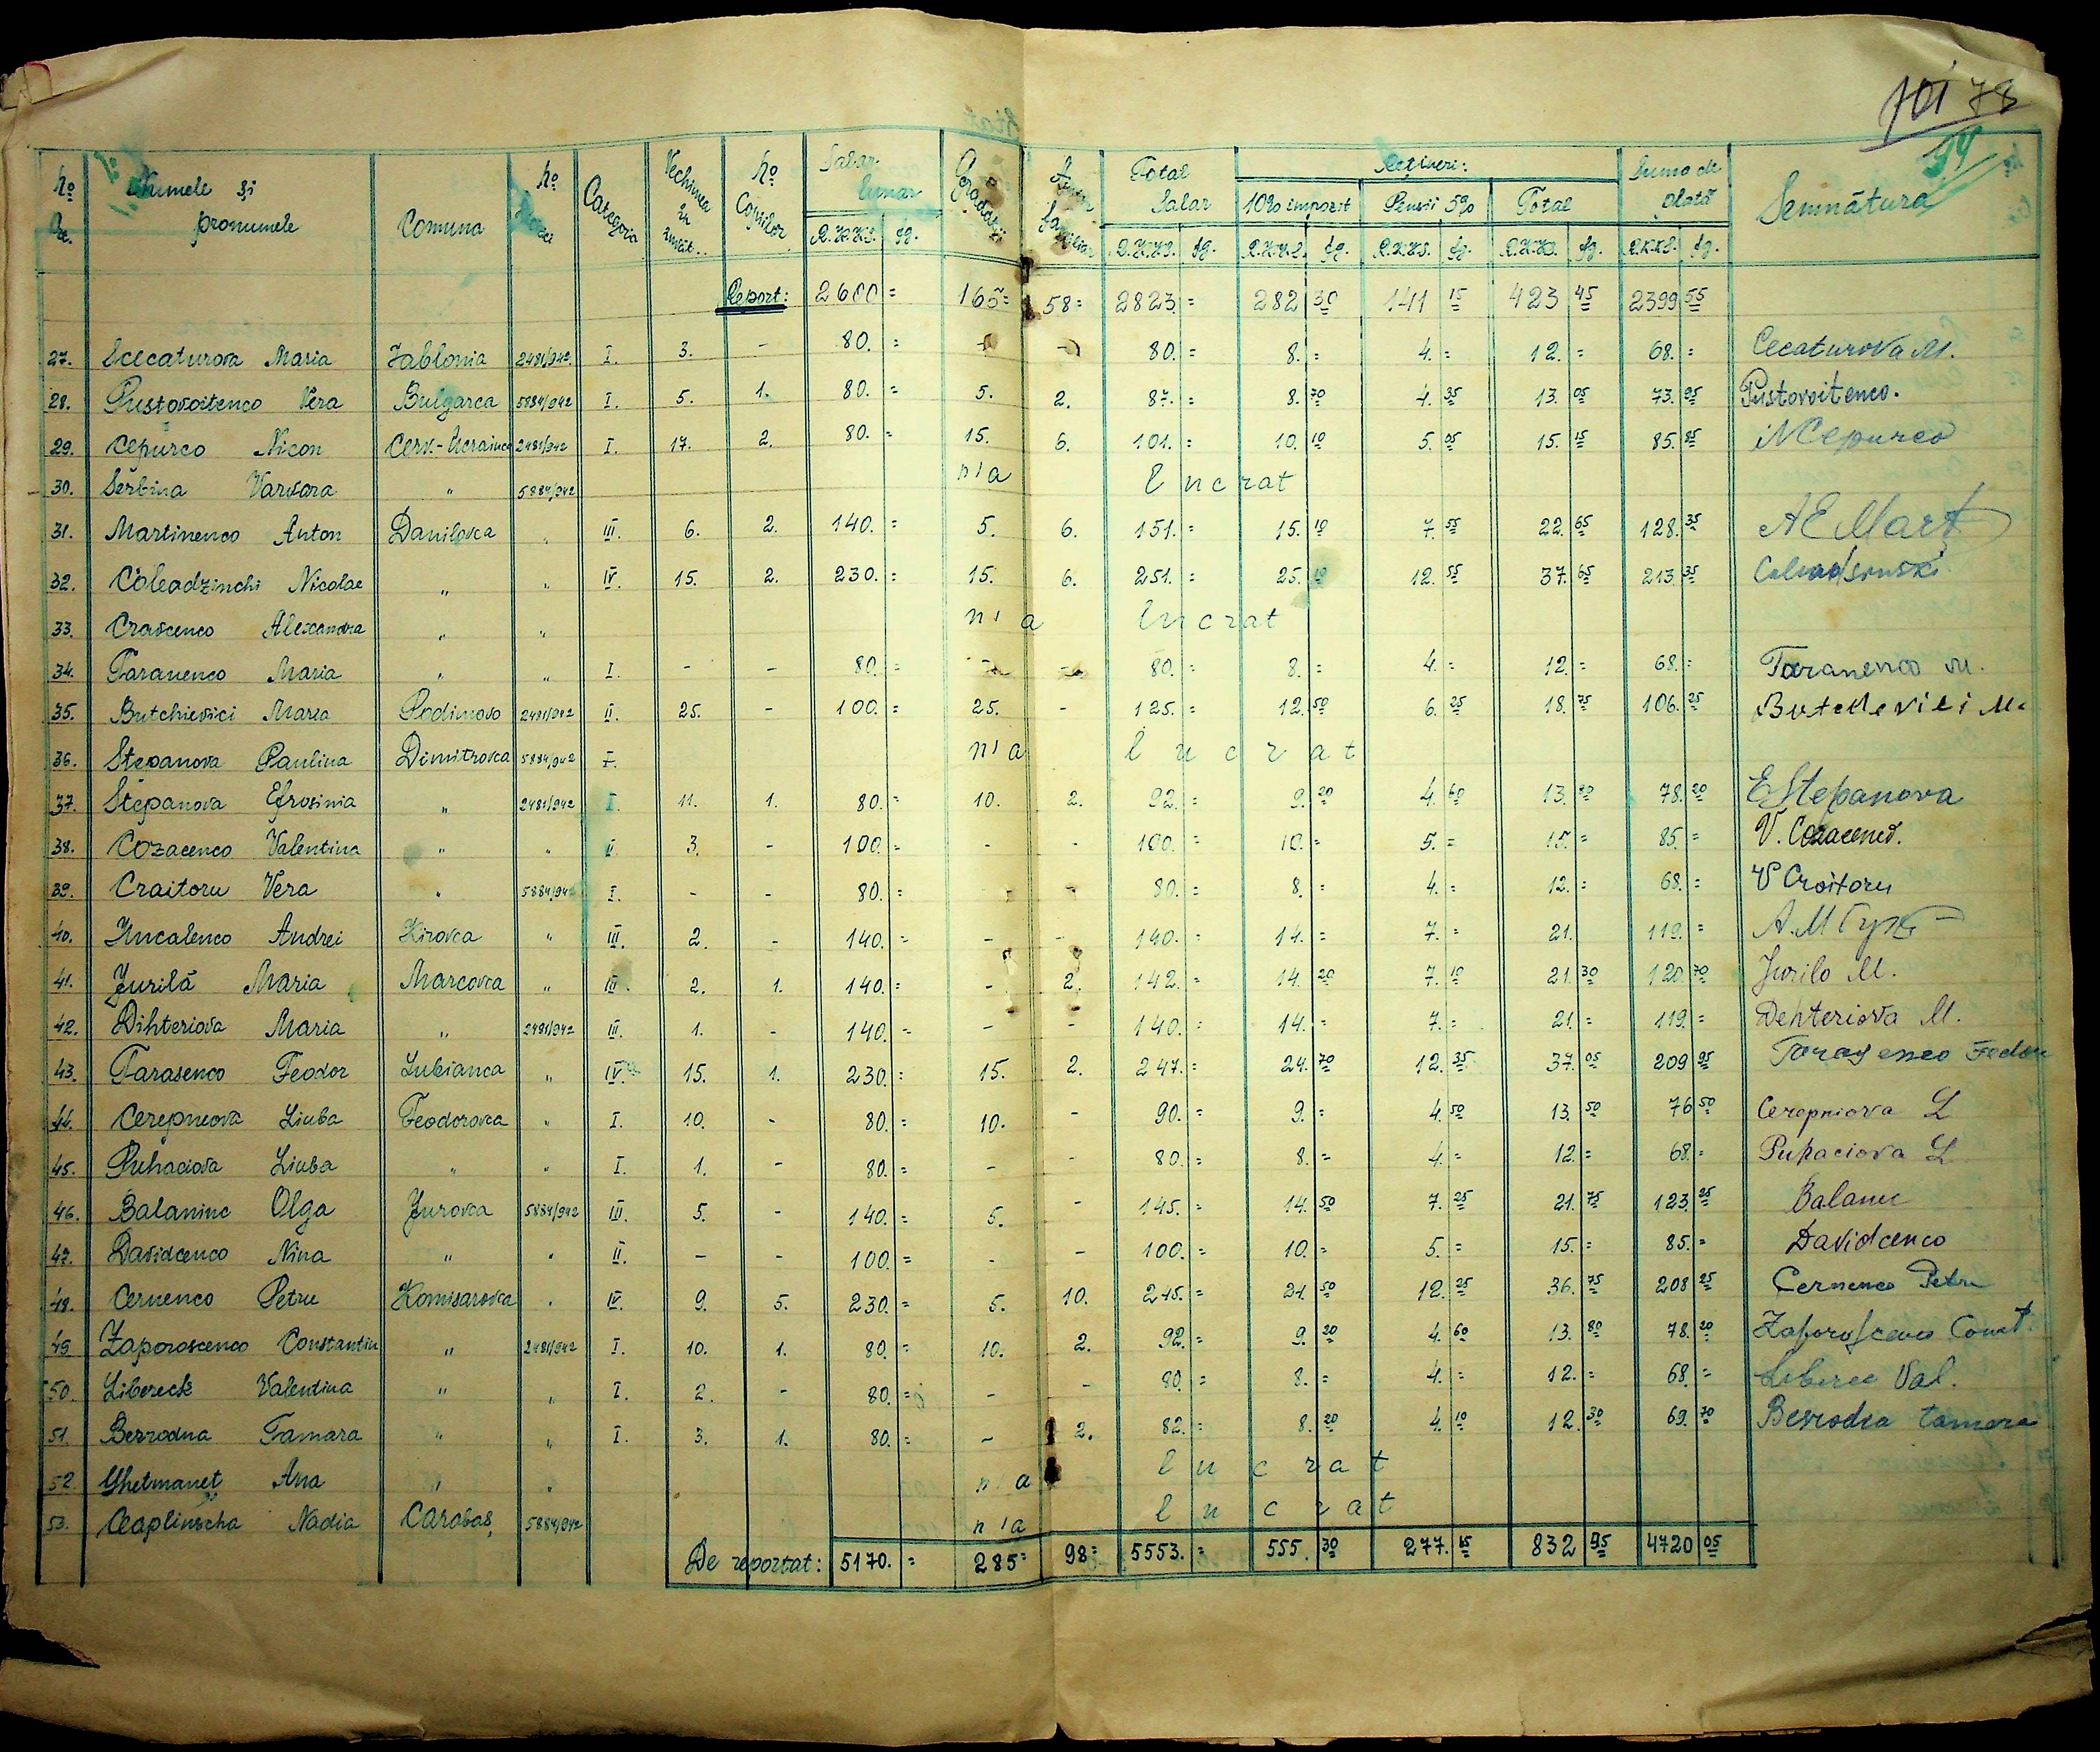 101 78
74
No Crt. Numele și pronumele Comuna No Categoria Vechimea în învăț. No Copiilor Salar lunar Gradații Total Salar Rețineri: Suma de plată Semnătura
10% impozit Pensii 5% Total
R.K.K.S. fg. R.K.K.S. fg. R.K.K.S. fg. R.K.K.S. fg. R.K.K.S. fg. R.K.K.S. fg.
Report: 2600 = 165= 58= 2823 = 282 30 141 15 423 45 2399 55
27. Maria Jablonia 2481/942 I. 3. - 80. = - - 80. = 8. = 4. = 12. = 68. = Cecaturova M.
28. Pustovoitenco Vera Bulgarca 5884/942 I. 5. 1. 80. = 5. 2. 87. = 8. 70 4. 35 13. 05 73. 95 Pustovoitenco.
29. Cepurco Nicon Cerv.-Ucrainca 2481/942 I. 17. 2. 80. = 15. 6. 101. = 10. 10 5. 05 15. 15 85. 85 NCepurco
30. Șerbina Varvara " 5884/942 n'a lucrat
31. Martinenco Anton Danilovca " III. 6. 2. 140. = 5. 6. 151. = 15. 10 7. 55 22. 65 128. 35 AEMart
32. Coleadzinchi Nicolae " " IV. 15. 2. 230. = 15. 6. 251. = 25. 10 12. 55 37. 65 213. 35
33. Cravcenco Alexandra " " n'a lucrat
34. Taranenco Maria " " I. - - 80. = - - 80. = 8. = 4. = 12. = 68. = Taranenco M.
35. Butchievici Maria Rodinovo 2481/942 II. 25. - 100. = 25. - 125. = 12. 50 6. 25 18. 75 106. 25 Butchevici M.
36. Stepanova Paulina Dimitrovca 5884/942 I. n'a lucrat
37. Stepanova Efrosinia " 2481/942 I. 11. 1. 80. = 10. 2. 92. = 9. 20 4. 60 13. 80 78. 20 EStepanova
38. Cozacenco Valentina " " II. 3. - 100. = - - 100. = 10. = 5. = 15. = 85. = V. Cozacenco.
39. Craitoru Vera " 5884/942 I. - - 80. = - - 80. = 8. = 4. = 12. = 68. = V Croitoru
40. Andrei Kirovca " III. 2. - 140. = - - 140. = 14. = 7. = 21. 119. =
41. Jurilă Maria Marcovca " III. 2. 1. 140. = - 2. 142. = 14. 20 7. 10 21. 30 120. 70 Jurilo M.
42. Dihteriova Maria " 2481/942 III. 1. - 140. = - - 140. = 14. = 7. = 21. = 119. = Dehteriova M.
43. Tarasenco Feodor Lubianca " IV. 15. 1. 230. = 15. 2. 247. = 24. 70 12. 35 37. 05 209 95 Tarasenco Fedor
44. Cerepneova Liuba Feodorovca " I. 10. - 80. = 10. - 90. = 9. = 4. 50 13. 50 76 50 Cerepniova L
45. Puhaciova Liuba " " I. 1. - 80. = - - 80. = 8. = 4. = 12. = 68. = Puhaciova L
46. Balaninc Olga Jurovca 5884/942 III. 5. - 140. = 5. - 145. = 14. 50 7. 25 21. 75 123. 25
47. Davidcenco Nina " " II. - - 100. = - - 100. = 10. = 5. = 15. = 85. = Davidcenco
48. Cernenco Petru Komisarovca " IV. 9. 5. 230. = 5. 10. 245. = 24. 50 12. 25 36. 75 208 25 Cernenco Petru
49 Zaporoscenco Constantin " 2481/942 I. 10. 1. 80. = 10. 2. 92. = 9. 20 4. 60 13. 80 78. 20 Zaporoscenco Const.
50. Libereck Valentina " " I. 2. - 80. = - - 80. = 8. = 4. = 12. = 68. = Val.
51. Bezrodna Tamara " " I. 3. 1. 80. = - 2. 82. = 8. 20 4. 10 12. 30 69. 70 Bezrodna Tamara
52. Ghetmanet Ana " " n'a lucrat
53. Ceaplinscha Nadia Carabaș 5884/942 n'a lucrat
De reportat: 5170. = 285= 98= 5553. = 555. 30 277. 15 832 95 4720 05